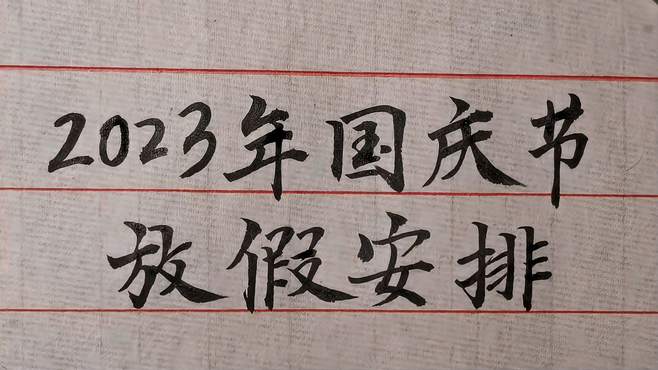 2023年国庆节
放假安排